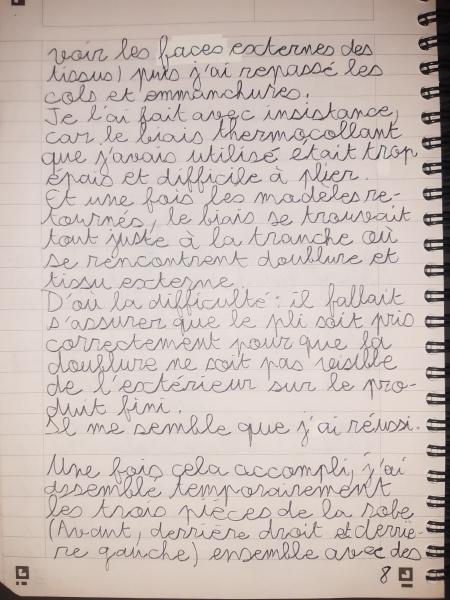 voir les faces externes des
tissus) puis j'ai repassé les
cols et emmanchures.
Je l'ai fait avec insistance,
car le biais thermocollant
que j'avais utilisé était trop
épais et difficile à plier.
Et une fois les modèles re-
tournés, le biais se trouvait
tout juste à la tranche où
se rencontrent doublure et
tissu externe.
D'où la difficulté : il fallait
s'assurer que le pli soit pris
correctement pour que la
doublure ne soit pas visible
de l'extérieur sur le pro-
duit fini.
Il me semble que j'ai réussi.
Une fois cela accompli, j'ai
assemblé temporairement
les trois pièces de la robe
(Avant, derrière droit et derriè-
re gauche) ensemble avec des
8